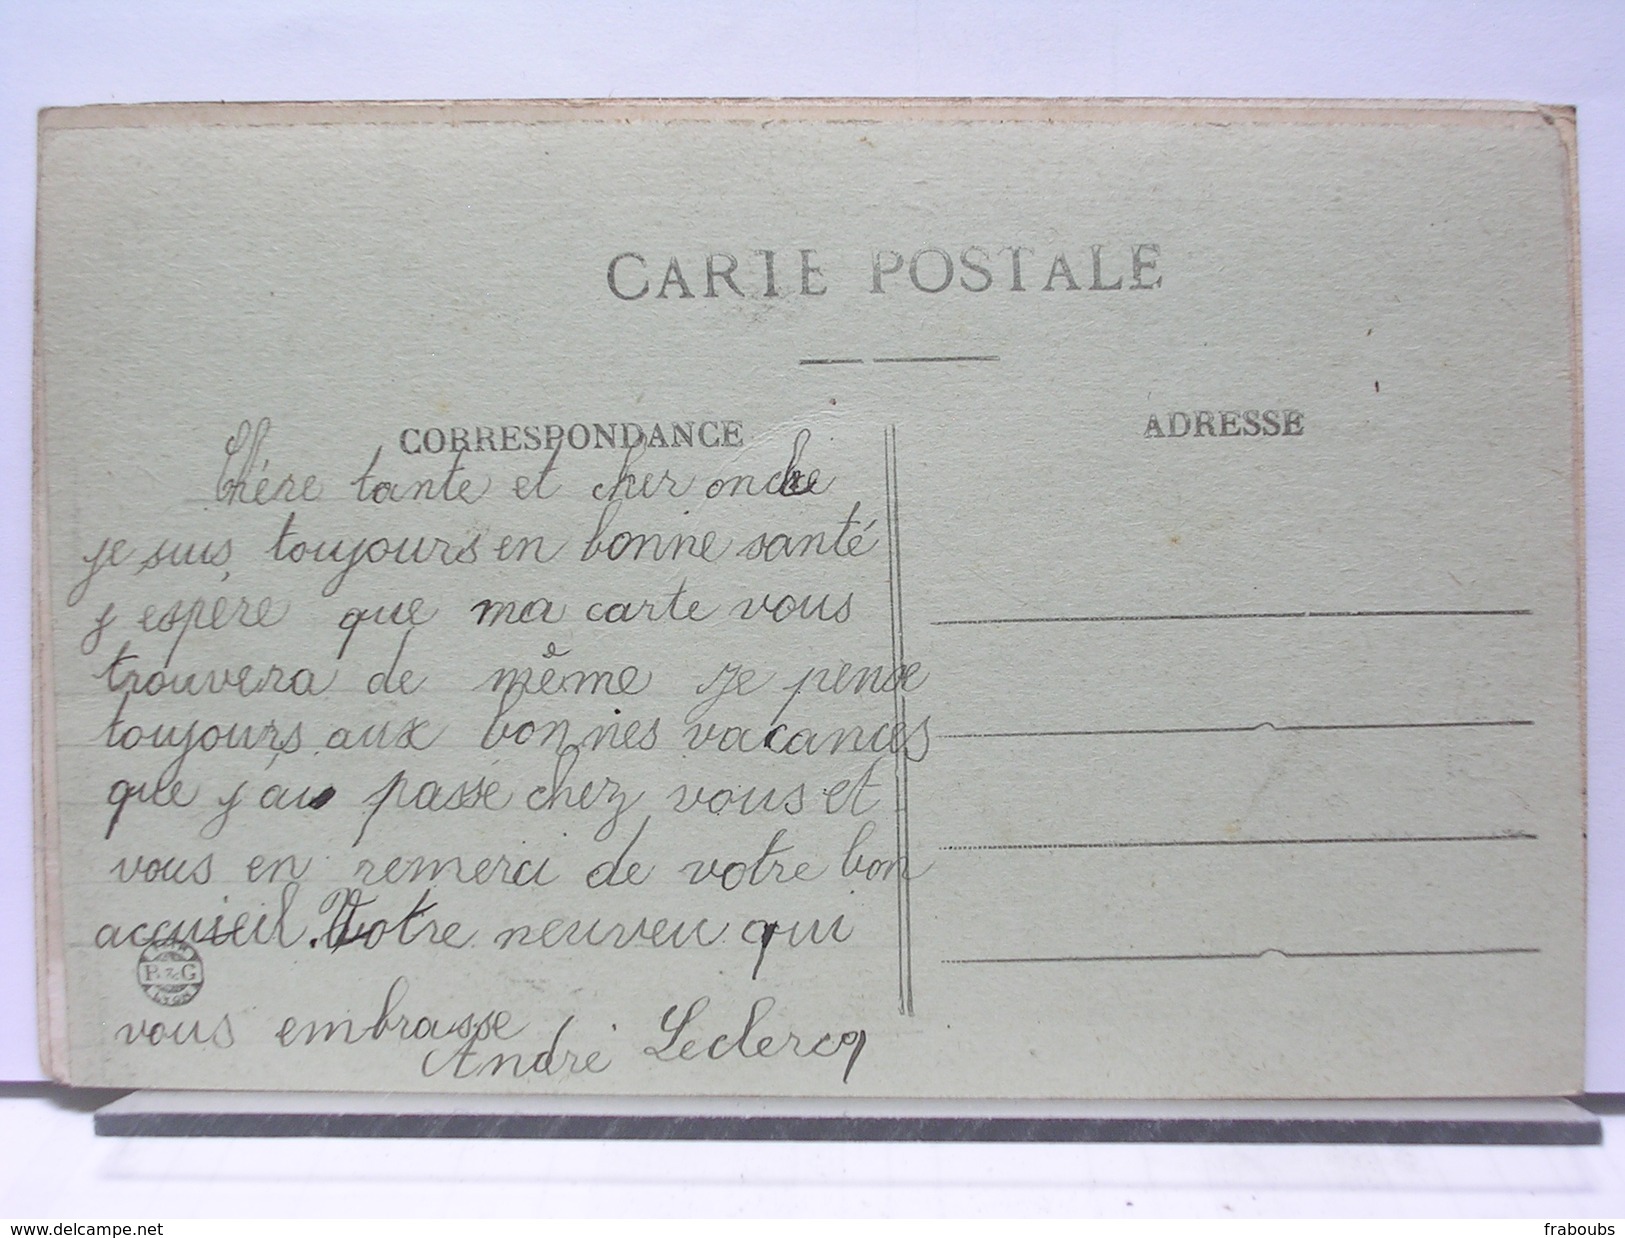 CARTE POSTALE
CORRESPONDANCE
Chére tante et cher oncle
je suis toujours en bonne santé
j espère que ma carte vous
trouvera de même je pense
toujours aux bonnes vacances
que j'ai passé chez vous et
vous en remerci de votre bon
accuieil. Votre neuveu qui
vous embrasse
André Leclercq
B & G
LYON
ADRESSE
www.delcampe.net
fraboubs